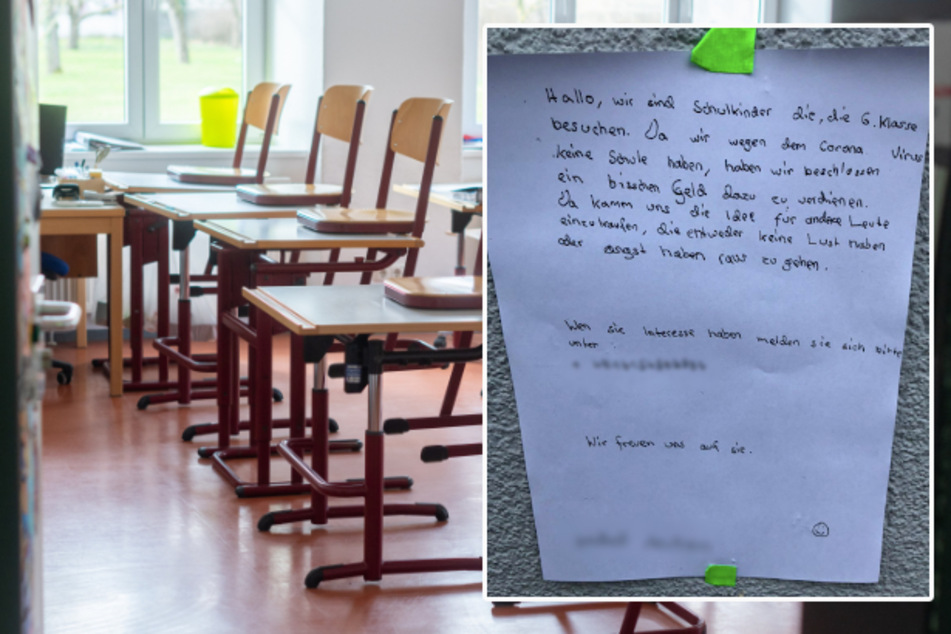 Hallo, wir sind Schulkinder die, die 6. Klasse
besuchen. Da wir wegen dem Corona Virus
keine Schule haben, haben wir beschlossen
ein bisschen Geld dazu zu verdienen.
Da kamm uns die Idee für andere Leute
einzukaufen, die entweder keine Lust haben
oder angst haben raus zu gehen.
Wen sie Interesse haben melden sie sich bitte
unter
Wir freuen uns auf sie.